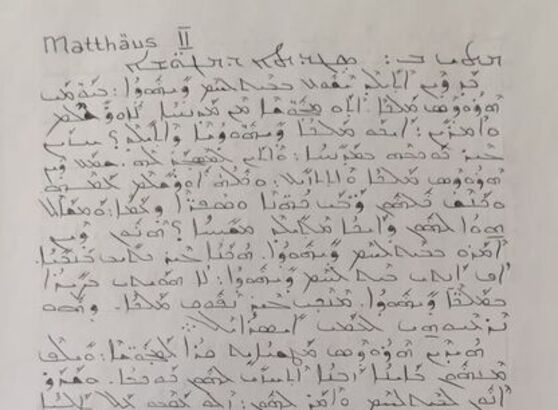 Matthäus II
ܟܕ ܕܝܢ ܐܬܝܠܕ ܝܫܘܥ ܒܒܝܬ ܠܚܡ ܕܝܗܘܕܐ: ܒܝܘܡܝ
ܗܪܘܕܣ ܡܠܟܐ: ܐܬܘ ܡܓܘܫܐ ܡܢ ܡܕܢܚܐ ܠܐܘܪܫܠܡ
ܘܐܡܪܝܢ: ܐܝܟܘ ܡܠܟܐ ܕܝܗܘܕܝܐ ܕܐܬܝܠܕ؟ ܚܙܝܢ
ܓܝܪ ܟܘܟܒܗ ܒܡܕܢܚܐ: ܘܐܬܝܢ ܠܡܣܓܕ ܠܗ. ܫܡܥ ܕܝܢ
ܗܪܘܕܣ ܡܠܟܐ ܘܐܬܬܙܝܥ: ܘܟܠܗ ܐܘܪܫܠܡ ܥܡܗ
ܘܟܢܫ ܟܠܗܘܢ ܪܒܝ ܟܗܢܐ ܘܣܦܪܐ ܕܥܡܐ: ܘܡܫܐܠ
ܗܘܐ ܠܗܘܢ ܕܐܝܟܐ ܡܬܝܠܕ ܡܫܝܚܐ؟ ܗܢܘܢ ܕܝܢ
ܐܡܪܘ ܒܒܝܬ ܠܚܡ ܕܝܗܘܕܐ. ܗܟܢܐ ܓܝܪ ܟܬܝܒ ܒܢܒܝܐ.
ܐܦ ܐܢܬܝ ܒܝܬ ܠܚܡ ܕܝܗܘܕܐ: ܠܐ ܗܘܝܬܝ ܒܨܝܪܐ
ܒܡܠܟܐ ܕܝܗܘܕܐ. ܡܢܟܝ ܓܝܪ ܢܦܘܩ ܡܠܟܐ. ܕܗܘ
ܢܪܥܝܘܗܝ ܠܥܡܝ ܐܝܣܪܐܝܠ
ܗܝܕܝܢ ܗܪܘܕܣ ܡܛܫܝܐܝܬ ܩܪܐ ܠܡܓܘܫܐ: ܘܝܠܦ
ܡܢܗܘܢ ܒܐܝܢܐ ܙܒܢܐ ܐܬܚܙܝ ܠܗܘܢ ܟܘܟܒܐ. ܘܫܕܪ
ܐܢܘܢ ܠܒܝܬ ܠܚܡ ܘܐܡܪ ܠܗܘܢ: ܙܠܘ ܥܩܒܘ ܥܠ ܛܠܝܐ